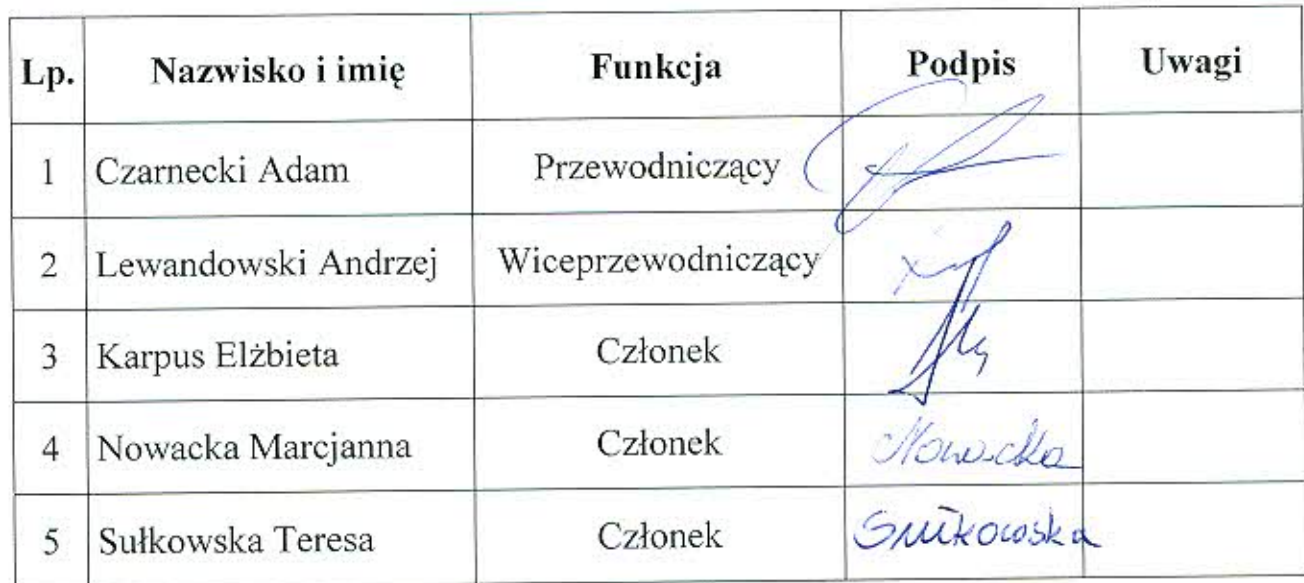 Lp. Nazwisko i imię Funkcja Podpis Uwagi
1 Czarnecki Adam Przewodniczący
2 Lewandowski Andrzej Wiceprzewodniczący
3 Karpus Elżbieta Członek
4 Nowacka Marcjanna Członek Nowacka
5 Sułkowska Teresa Członek Sułkowska